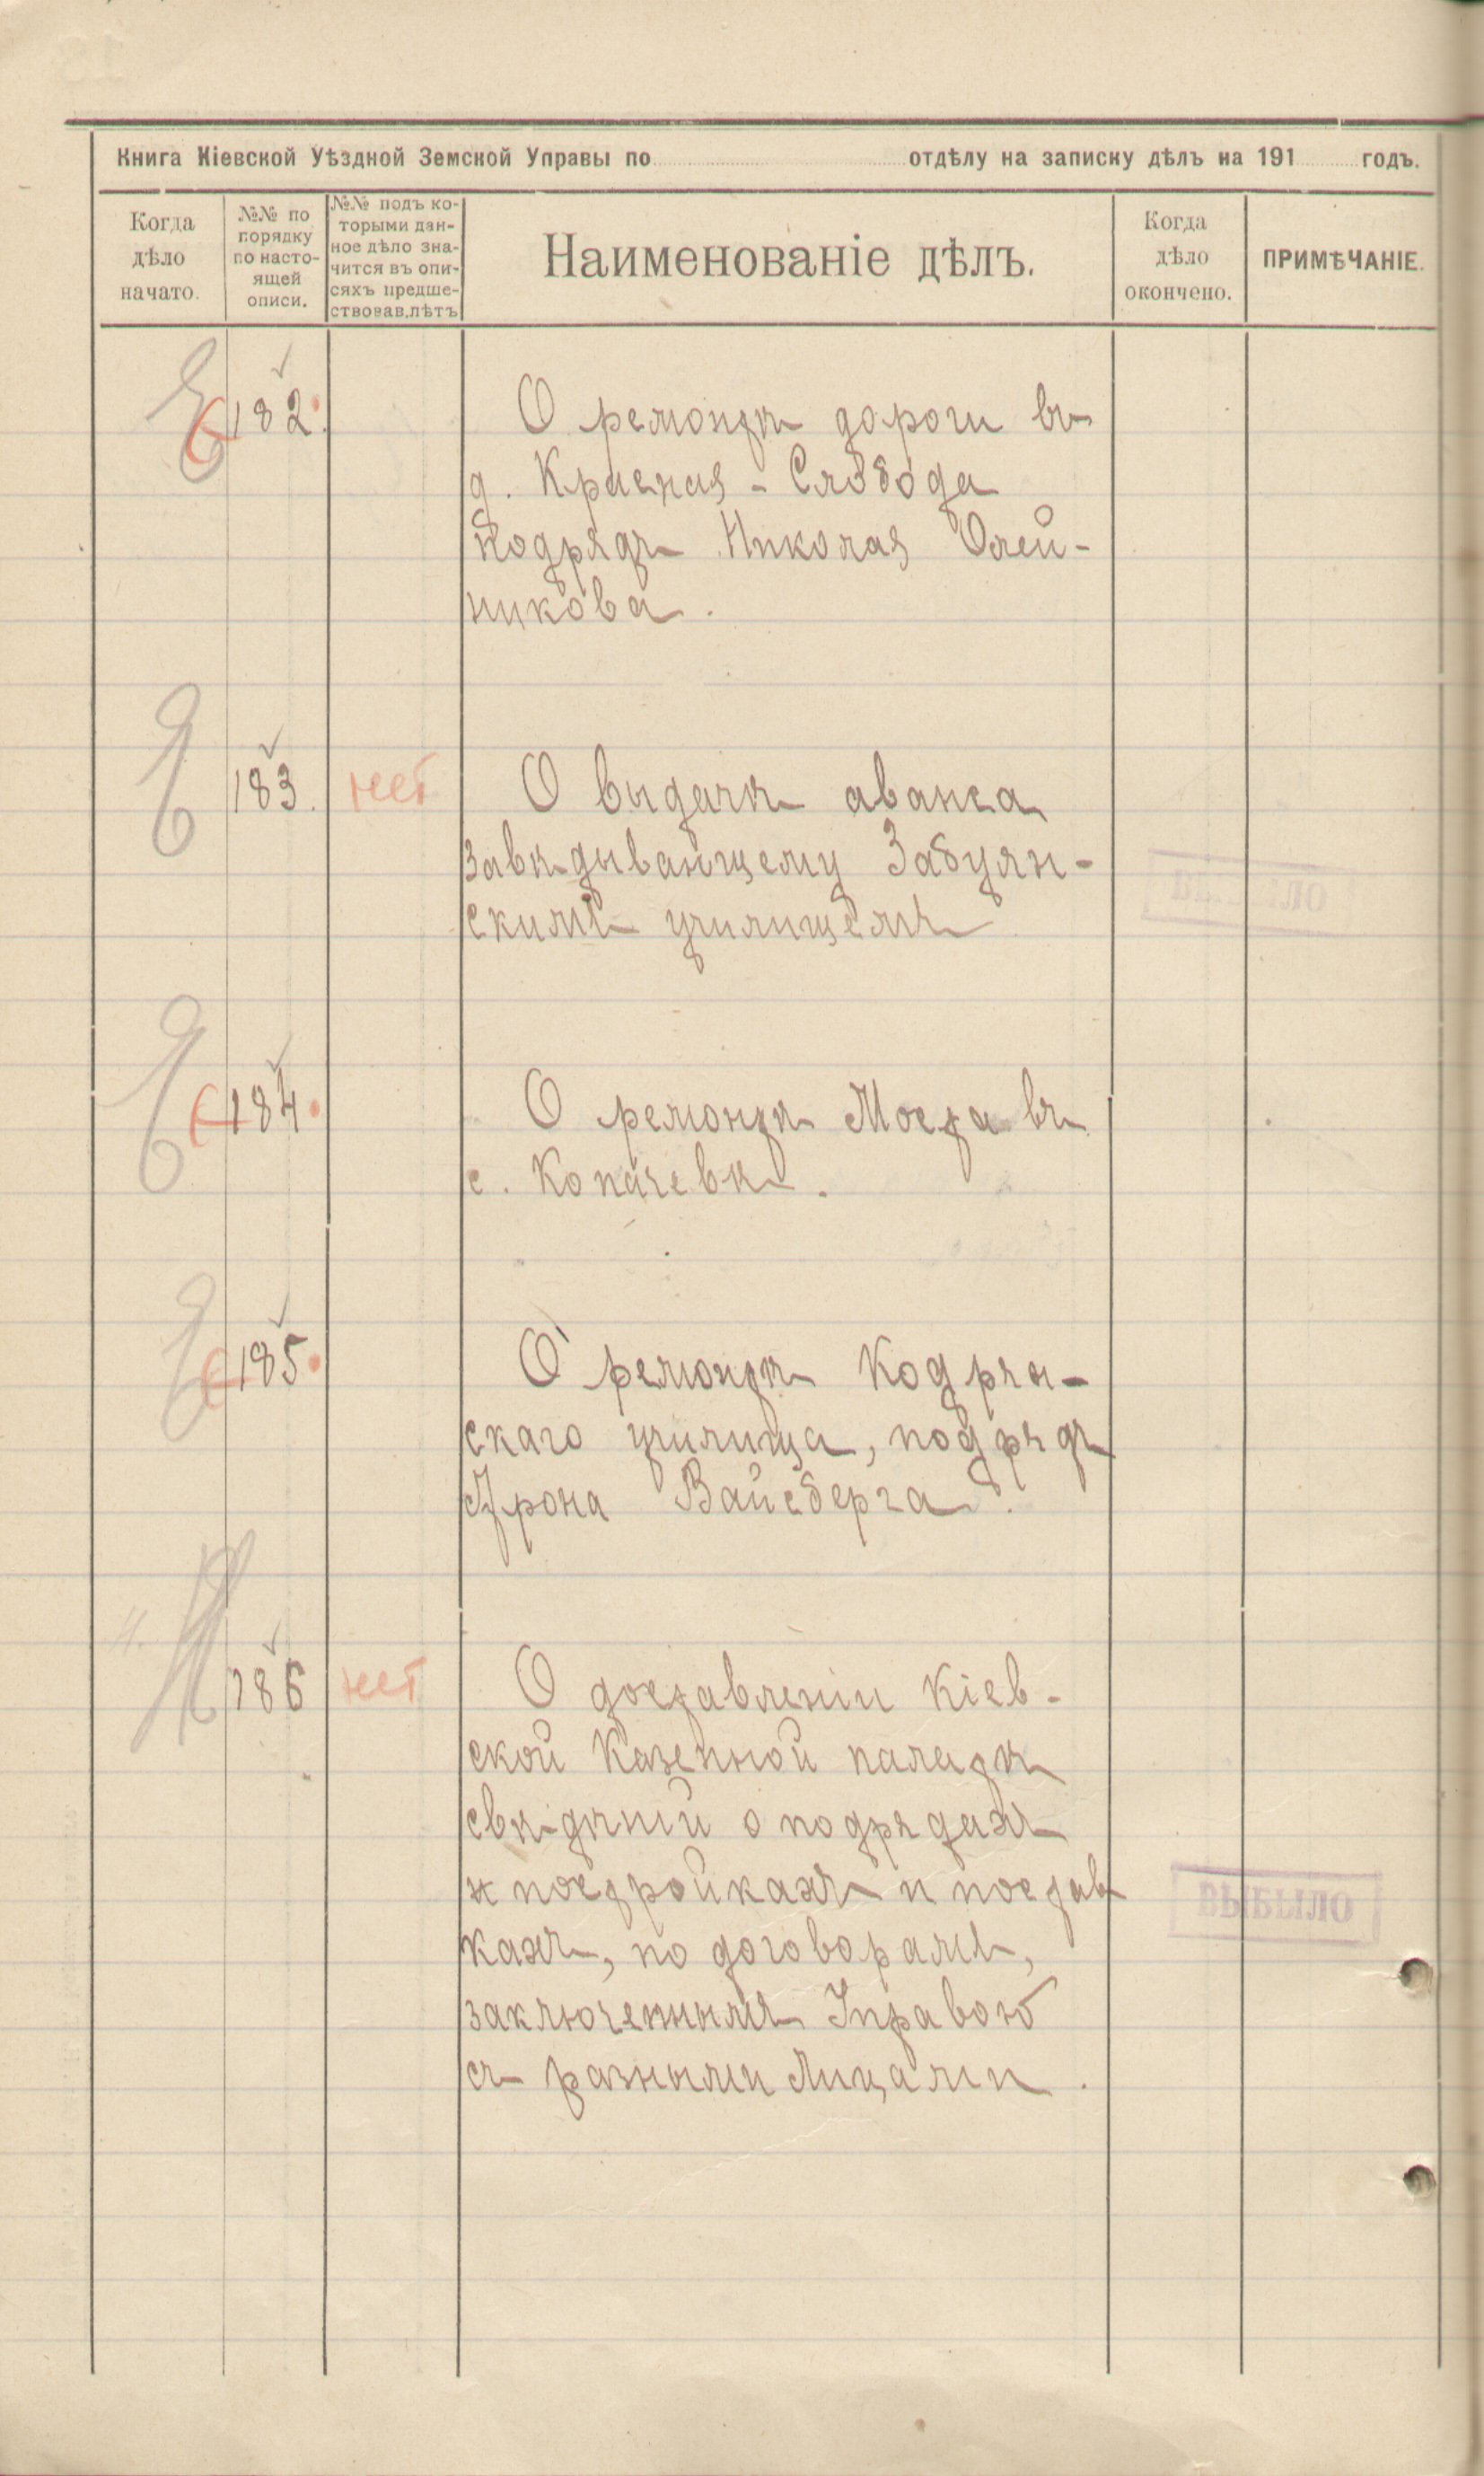 Книга Кіевской Уѣздной Земской Управы по отдѣлу на записку дѣлъ на 191 годъ.
Когда
дѣло
начато.
№№ по
порядку
по насто-
ящей
описи.
№№ подъ ко-
торыми дан-
ное дѣло зна-
чится въ опи-
сяхъ предше-
ствовав.лѣтъ
Наименованіе дѣлъ.
Когда
дѣло
окончено.
ПРИМѢЧАНІЕ.
182. О ремонтѣ дороги въ
д. Красная - Слобода
подрядъ Николая Олей-
никова.
183. нет О выдачѣ аванса
Завѣдывающему Забуян-
скимъ училищемъ
184. О ремонтѣ Моста въ
с. Копачевѣ.
185. О ремонтѣ Кодрян-
скаго училища, подрядъ
Арона Вайсберга.
186 нет О доставленіи Кіев-
ской Казенной палатѣ
свѣдѣній о подрядахъ
и постройкахъ и постав
кахъ, по договорамъ,
заключеннымъ Управою
съ разными Лицами.
ВЫБЫЛО